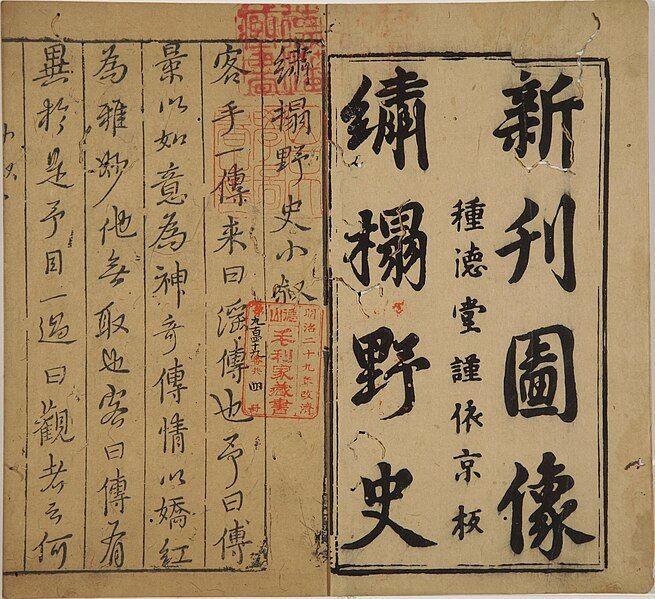 新刊圖像
種德堂謹依京板
繡榻野史
繡榻野史小敘
客手一傳来曰滛傳也予曰傳
景以如意為神竒傳情以嬌紅
為雅妙他無取也客曰傳有
異於是予目一過曰觀者云何
明治二十九年改濟
德山
毛利家藏書